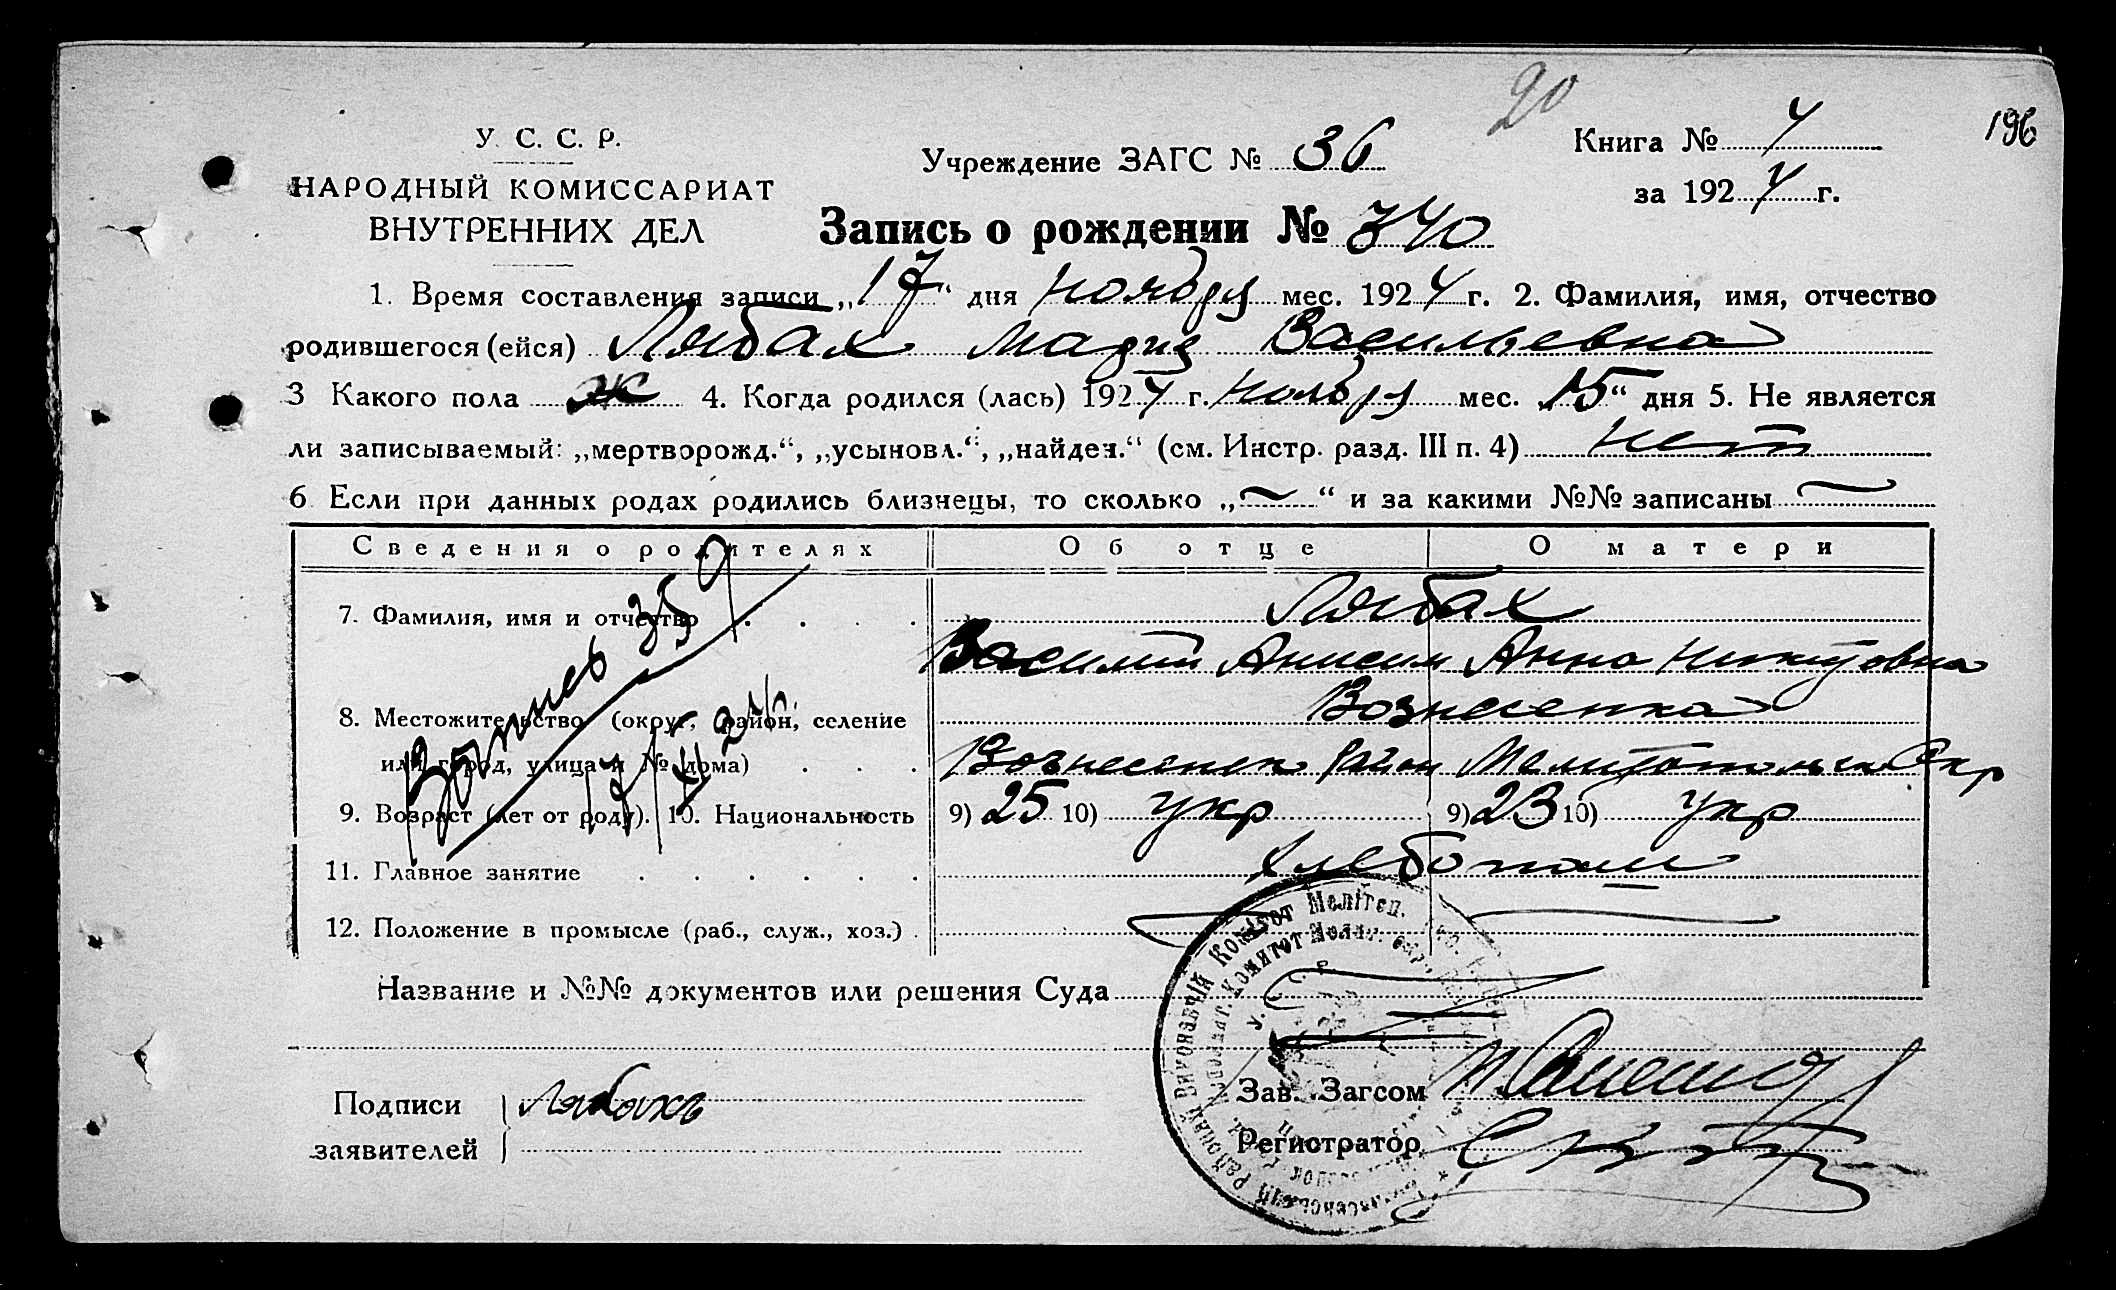 20
196
У. С. С. Р.
НАРОДНЫЙ КОМИССАРИАТ
ВНУТРЕННИХ ДЕЛ
Учреждение ЗАГС № 36
Книга № 4
за 1924 г.
Запись о рождении № 340
1. Время составления записи „17“ дня ноября мес. 1924 г. 2. Фамилия, имя, отчество
родившегося (ейся) Лябах Мария Васильевна
3 Какого пола ж 4. Когда родился (лась) 1924 г. ноября мес. „15“ дня 5. Не является
ли записываемый: „мертворожд.“, „усыновл.“, „найден.“ (см. Инстр. разд. III п. 4) нет
6. Если при данных родах родились близнецы, то сколько „—“ и за какими №№ записаны —
Сведения о родителях Об отце О матери
7. Фамилия, имя и отчество Лябах
Василий Анисим Анна Никитовна
8. Местожительство (округ, район, селение Вознесенка
или город, улица и № дома) Вознесенск район Мелитопольск Окр
9. Возраст (лет от роду). 10. Национальность 9) 25 10) укр 9) 23 10) укр
11. Главное занятие хлебопаш
12. Положение в промысле (раб., служ., хоз.)
359
17/XI 24
Название и №№ документов или решения Суда
Подписи заявителей Лябахъ
Зав. Загсом
Регистратор
Районный Виконавчий Комитет Мелітоп.
У. С. С. Р.